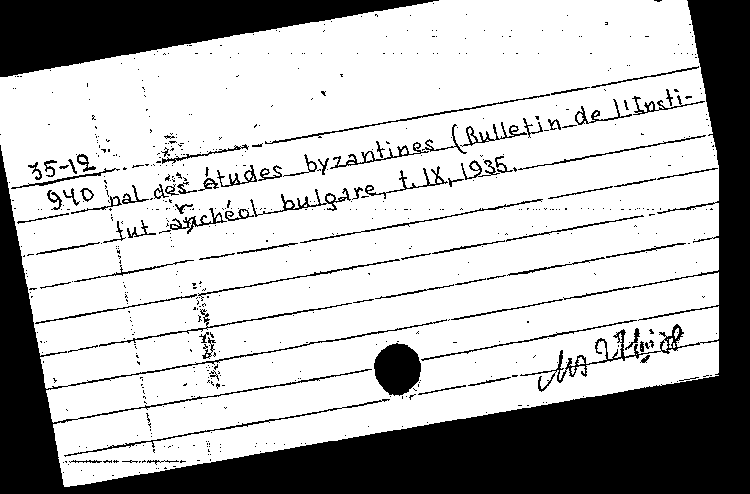 35-12
940 nal des études byzantines (Bulletin de l'Insti-
tut archéol. bulgare, t. IX, 1935.